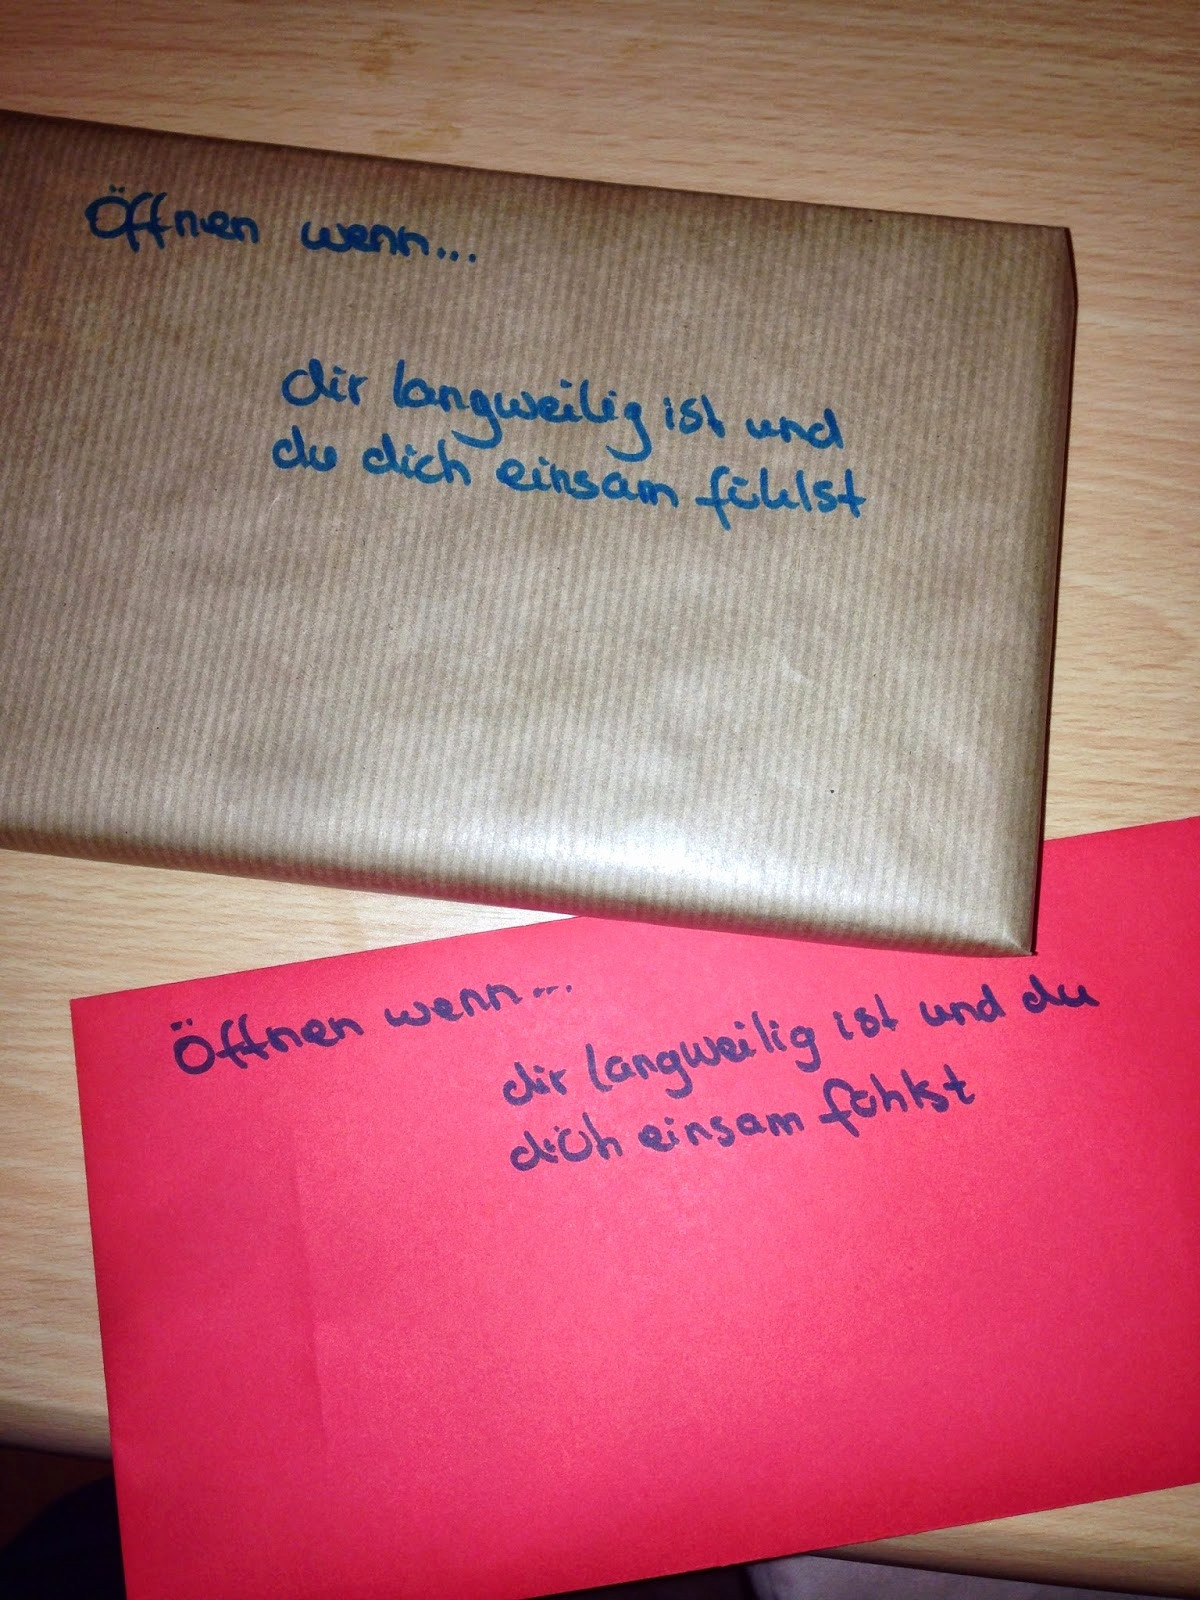 Öffnen wenn...
dir langweilig ist und
du dich einsam fühlst
Öffnen wenn...
dir langweilig ist und du
dich einsam fühlst